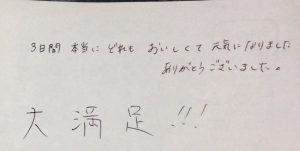 3日間 本当に どれも おいしくて 元気になりました
ありがとうございました。
大満足!!!